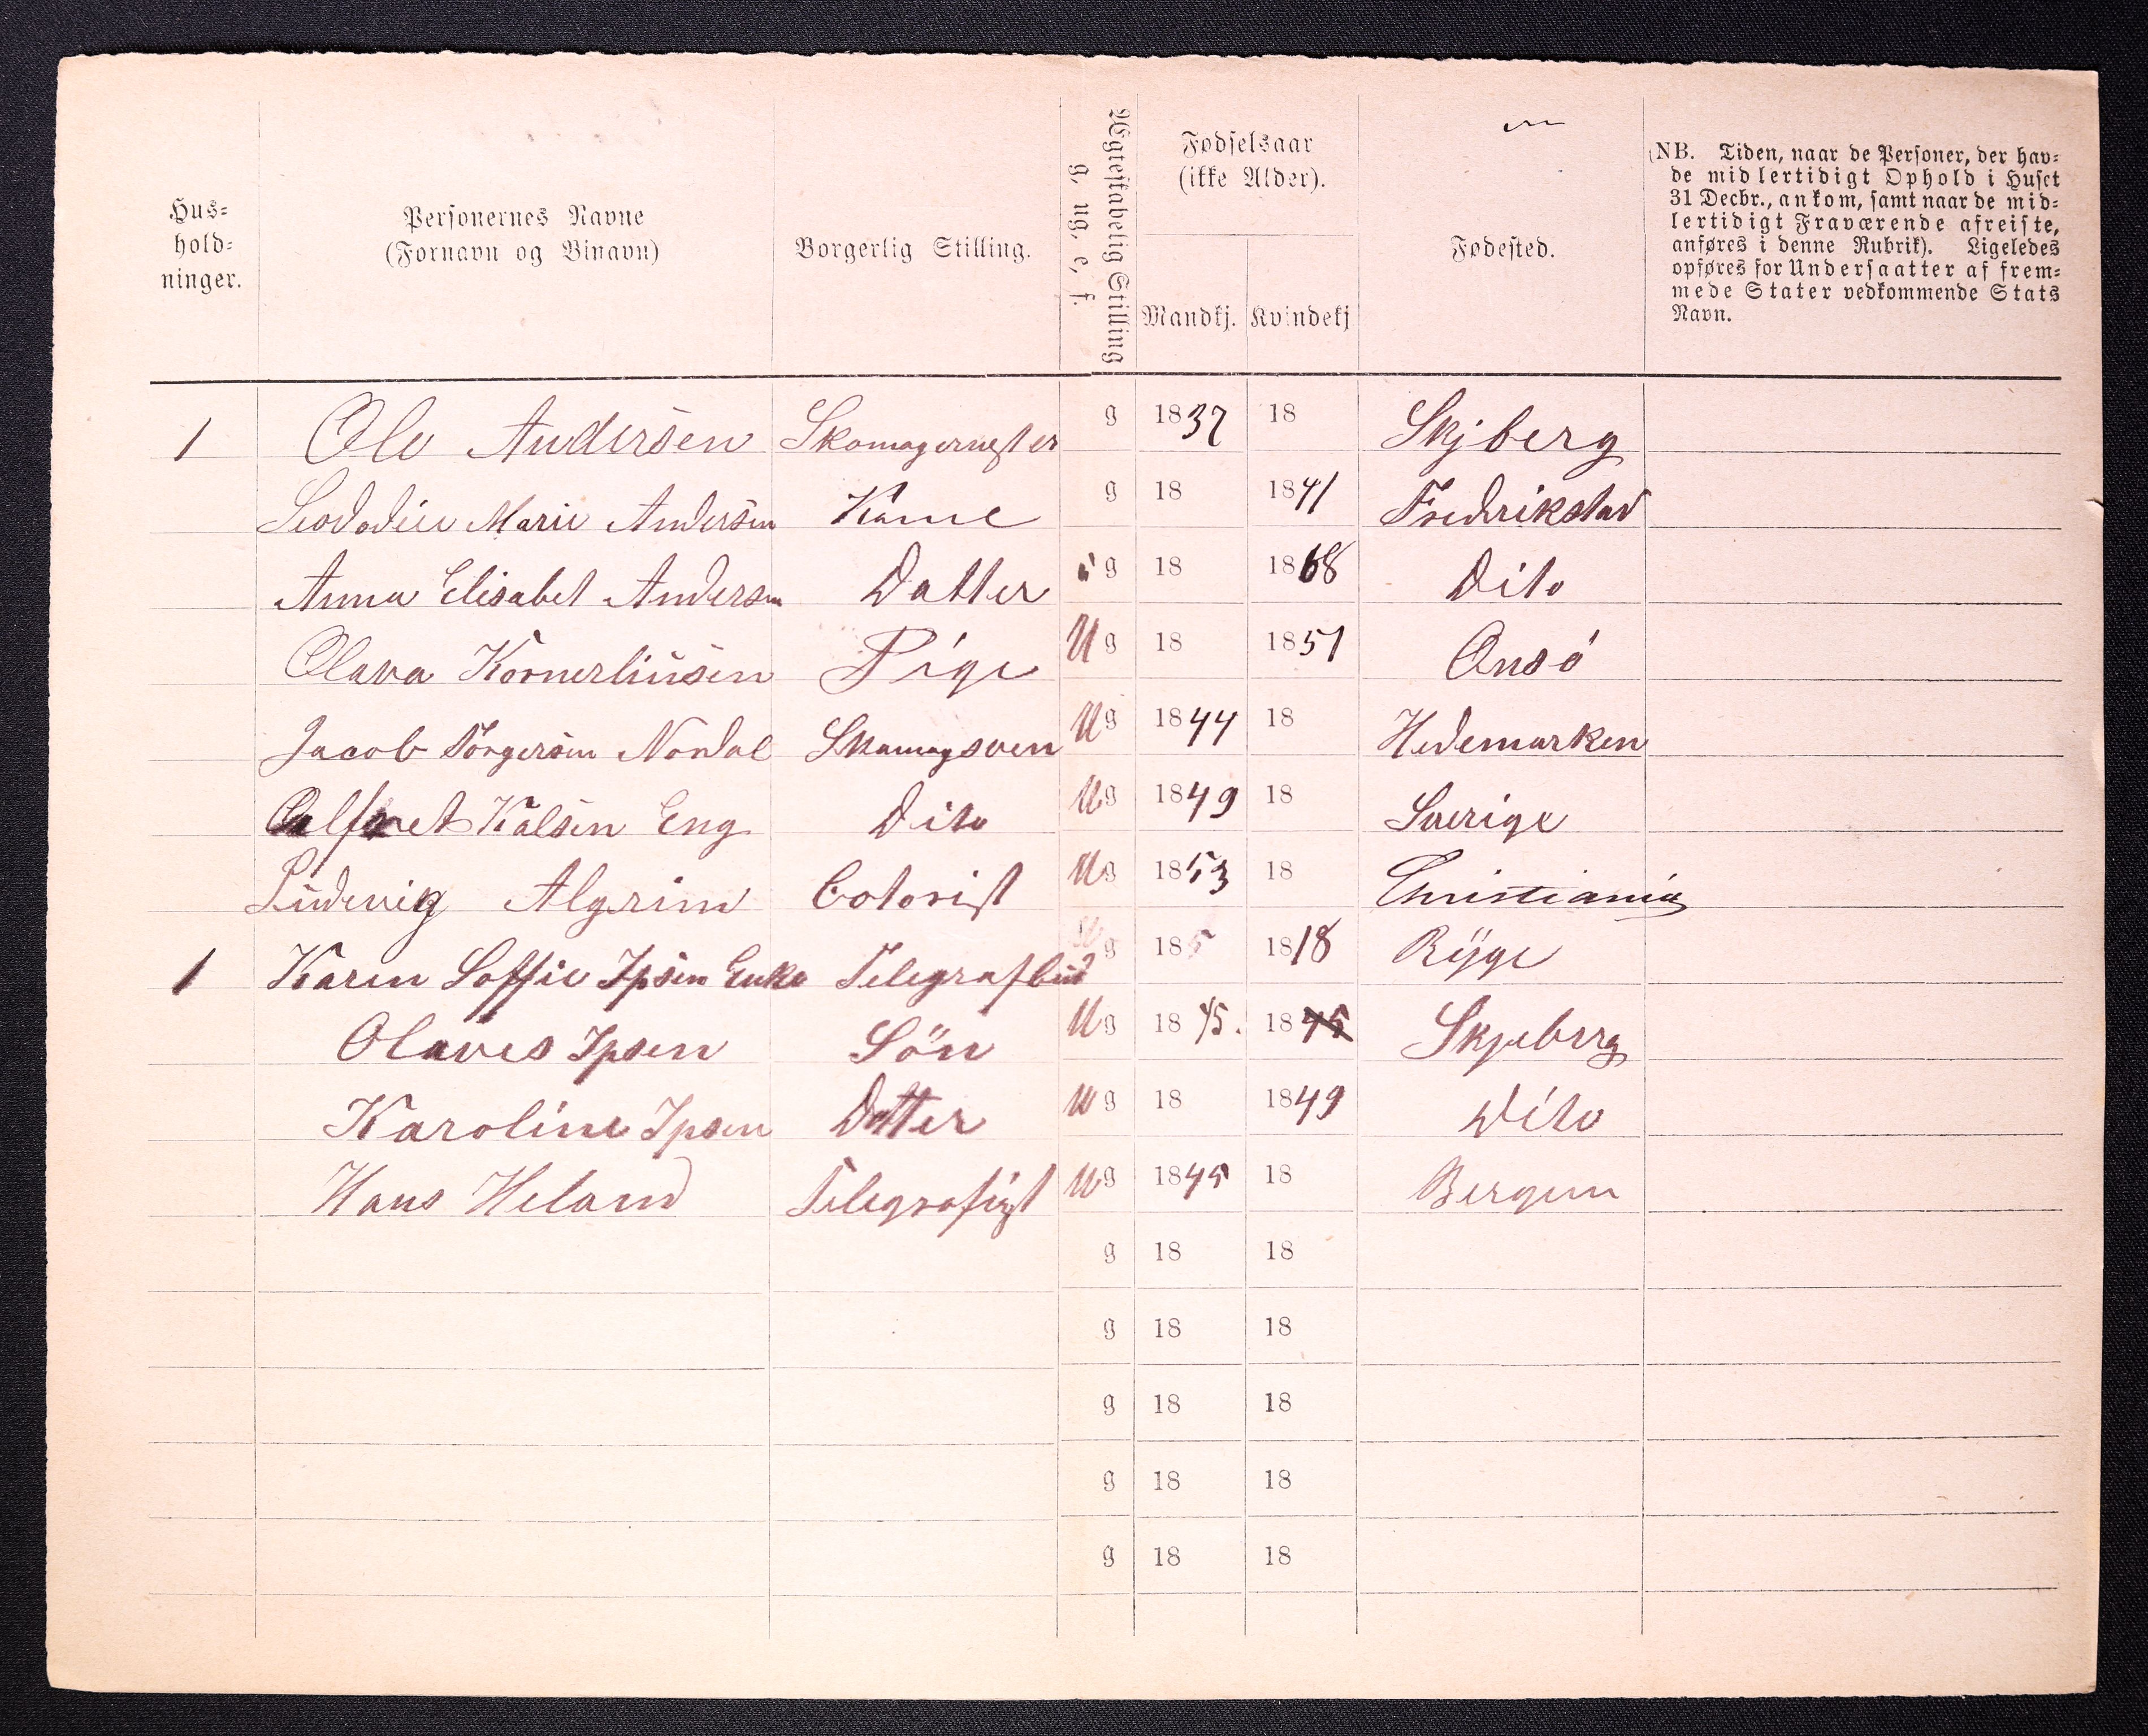 Hus-
hold-
ninger.
Personernes Navne
(Fornavn og Binavn)
Borgerlig Stilling.
Ægteskabelig Stilling
g, ug, e, f.
Fødselsaar
(ikke Alder).
Mandkj. Kvindekj
Fødested.
(NB. Tiden, naar de Personer, der hav-
de midlertidigt Ophold i Huset
31 Decbr., ankom, samt naar de mid-
lertidigt Fraværende afreiste,
anføres i denne Rubrik). Ligeledes
opføres for Undersaatter af frem-
mede Stater vedkommende Stats
Navn.
1 Ole Andersen Skomagermester g 1837 18 Skjberg
Marie Andersen Kone g 18 1841 Fredrikstad
Anna Elisabet Andersen Datter g 18 1868 Dito
Olava Kornerliusen Pige Ug 18 1851 Onsö
Jacob Torgersen Nordal Skomagsven Ug 1844 18 Hedemarken
Kalsen Eng Dito Ug 1849 18 Sverige
Ludevig Algrim Colorist Ug 1853 18 Christiania
1 Karen Soffie Ipsen Enke Telegrafbud g 185 1818 Ryge
Olaves Ipsen Sön Ug 1845. 1845 Skjeberg
Karoline Ipsen Datter Ug 18 1849 Dito
Hans Heland Telegrafist Ug 1845 18 Bergen
g 18 18
g 18 18
g 18 18
g 18 18
g 18 18